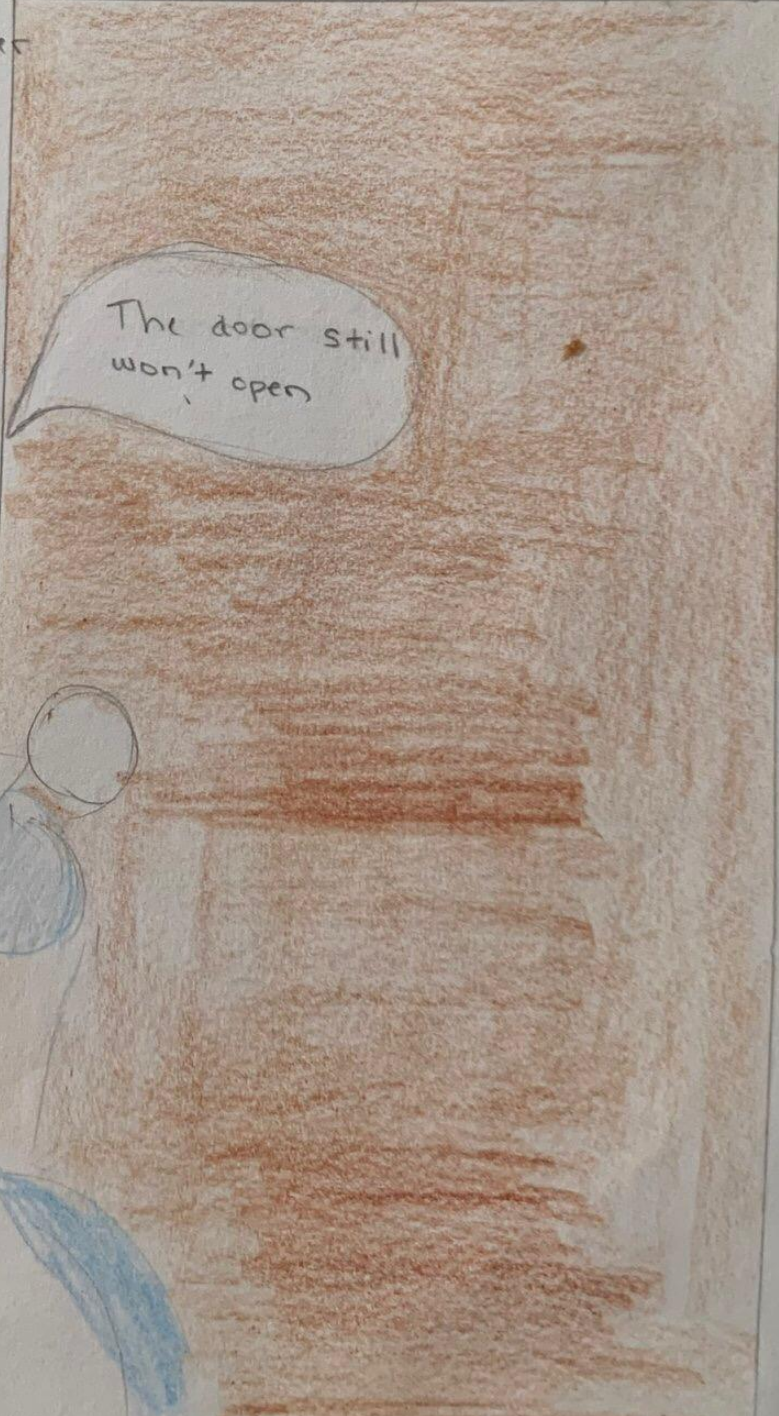 The door still
won't open